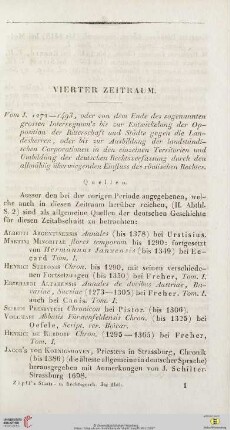 VIERTER ZEITRAUM.
Vom J. 1272—1493, oder von dem Ende des sogenannten
grossen Interregnum's bis zur Entwickelung der Op-
position der Ritterschaft und Städte gegen die Lan-
desherren, oder bis zur Ausbildung der landständi-
schen Corporationen in den einzelnen Territorien und
Umbildung der deutschen Rechtsverfassung durch den
allmählig überwiegenden Einfluss des römischen Rechtes.
Quellen.
Ausser den bei der vorigen Periode angegebenen, wel-
che auch in diesen Zeitraum herüber reichen, (II. Abthl.
S. 2) sind als allgemeine Quellen der deutschen Geschichte
für diesen Zeitabschnitt zu betrachten:
ALBERTI ARGENTINENSIS Annales (bis 1378) bei Urstisius.
MARTINI MINORITAE flores temporum bis 1290: fortgesetzt
von Hermannus Januensis (bis 1349) bei Ec-
card Tom. I.
HENRICI STERONIS Chron. bis 1290, mit seinen verschiede-
nen Fortsetzungen (bis 1330) bei Freher, Tom. I.
EBERHARDI ALTAHENSIS Annales de ducibus Austriae, Ba-
variae, Sueviae (1273—1305) bei Freher, Tom. I.
auch bei Canis. Tom. I.
SIFRIDI PRESBYTERI Chronicon bei Pistor. (bis 1306).
VOLCMARI Abbatis Fürstenfeldensis Chron. (bis 1325) bei
Oefele, Script. rer. Boicar.
HENRICI DE REBDORF Chron. (1295—1363) bei Freher,
Tom. I.
JACOB's VON KOENIGSHOVEN, Priesters in Strassburg, Chronik
(bis 1386) (die älteste allgemeine in deutscher Sprache)
herausgegeben mit Anmerkungen von J. Schilter
Strassburg 1698.
Zöpfl's Staats- u. Rechtsgesch. 2te Abth. I